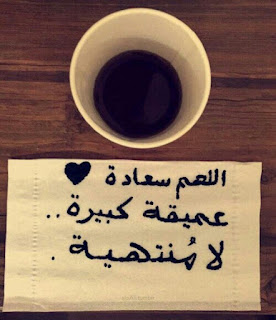 اللهم سعادة ♥
عميقة كبيرة ..
لا مُنتهية .